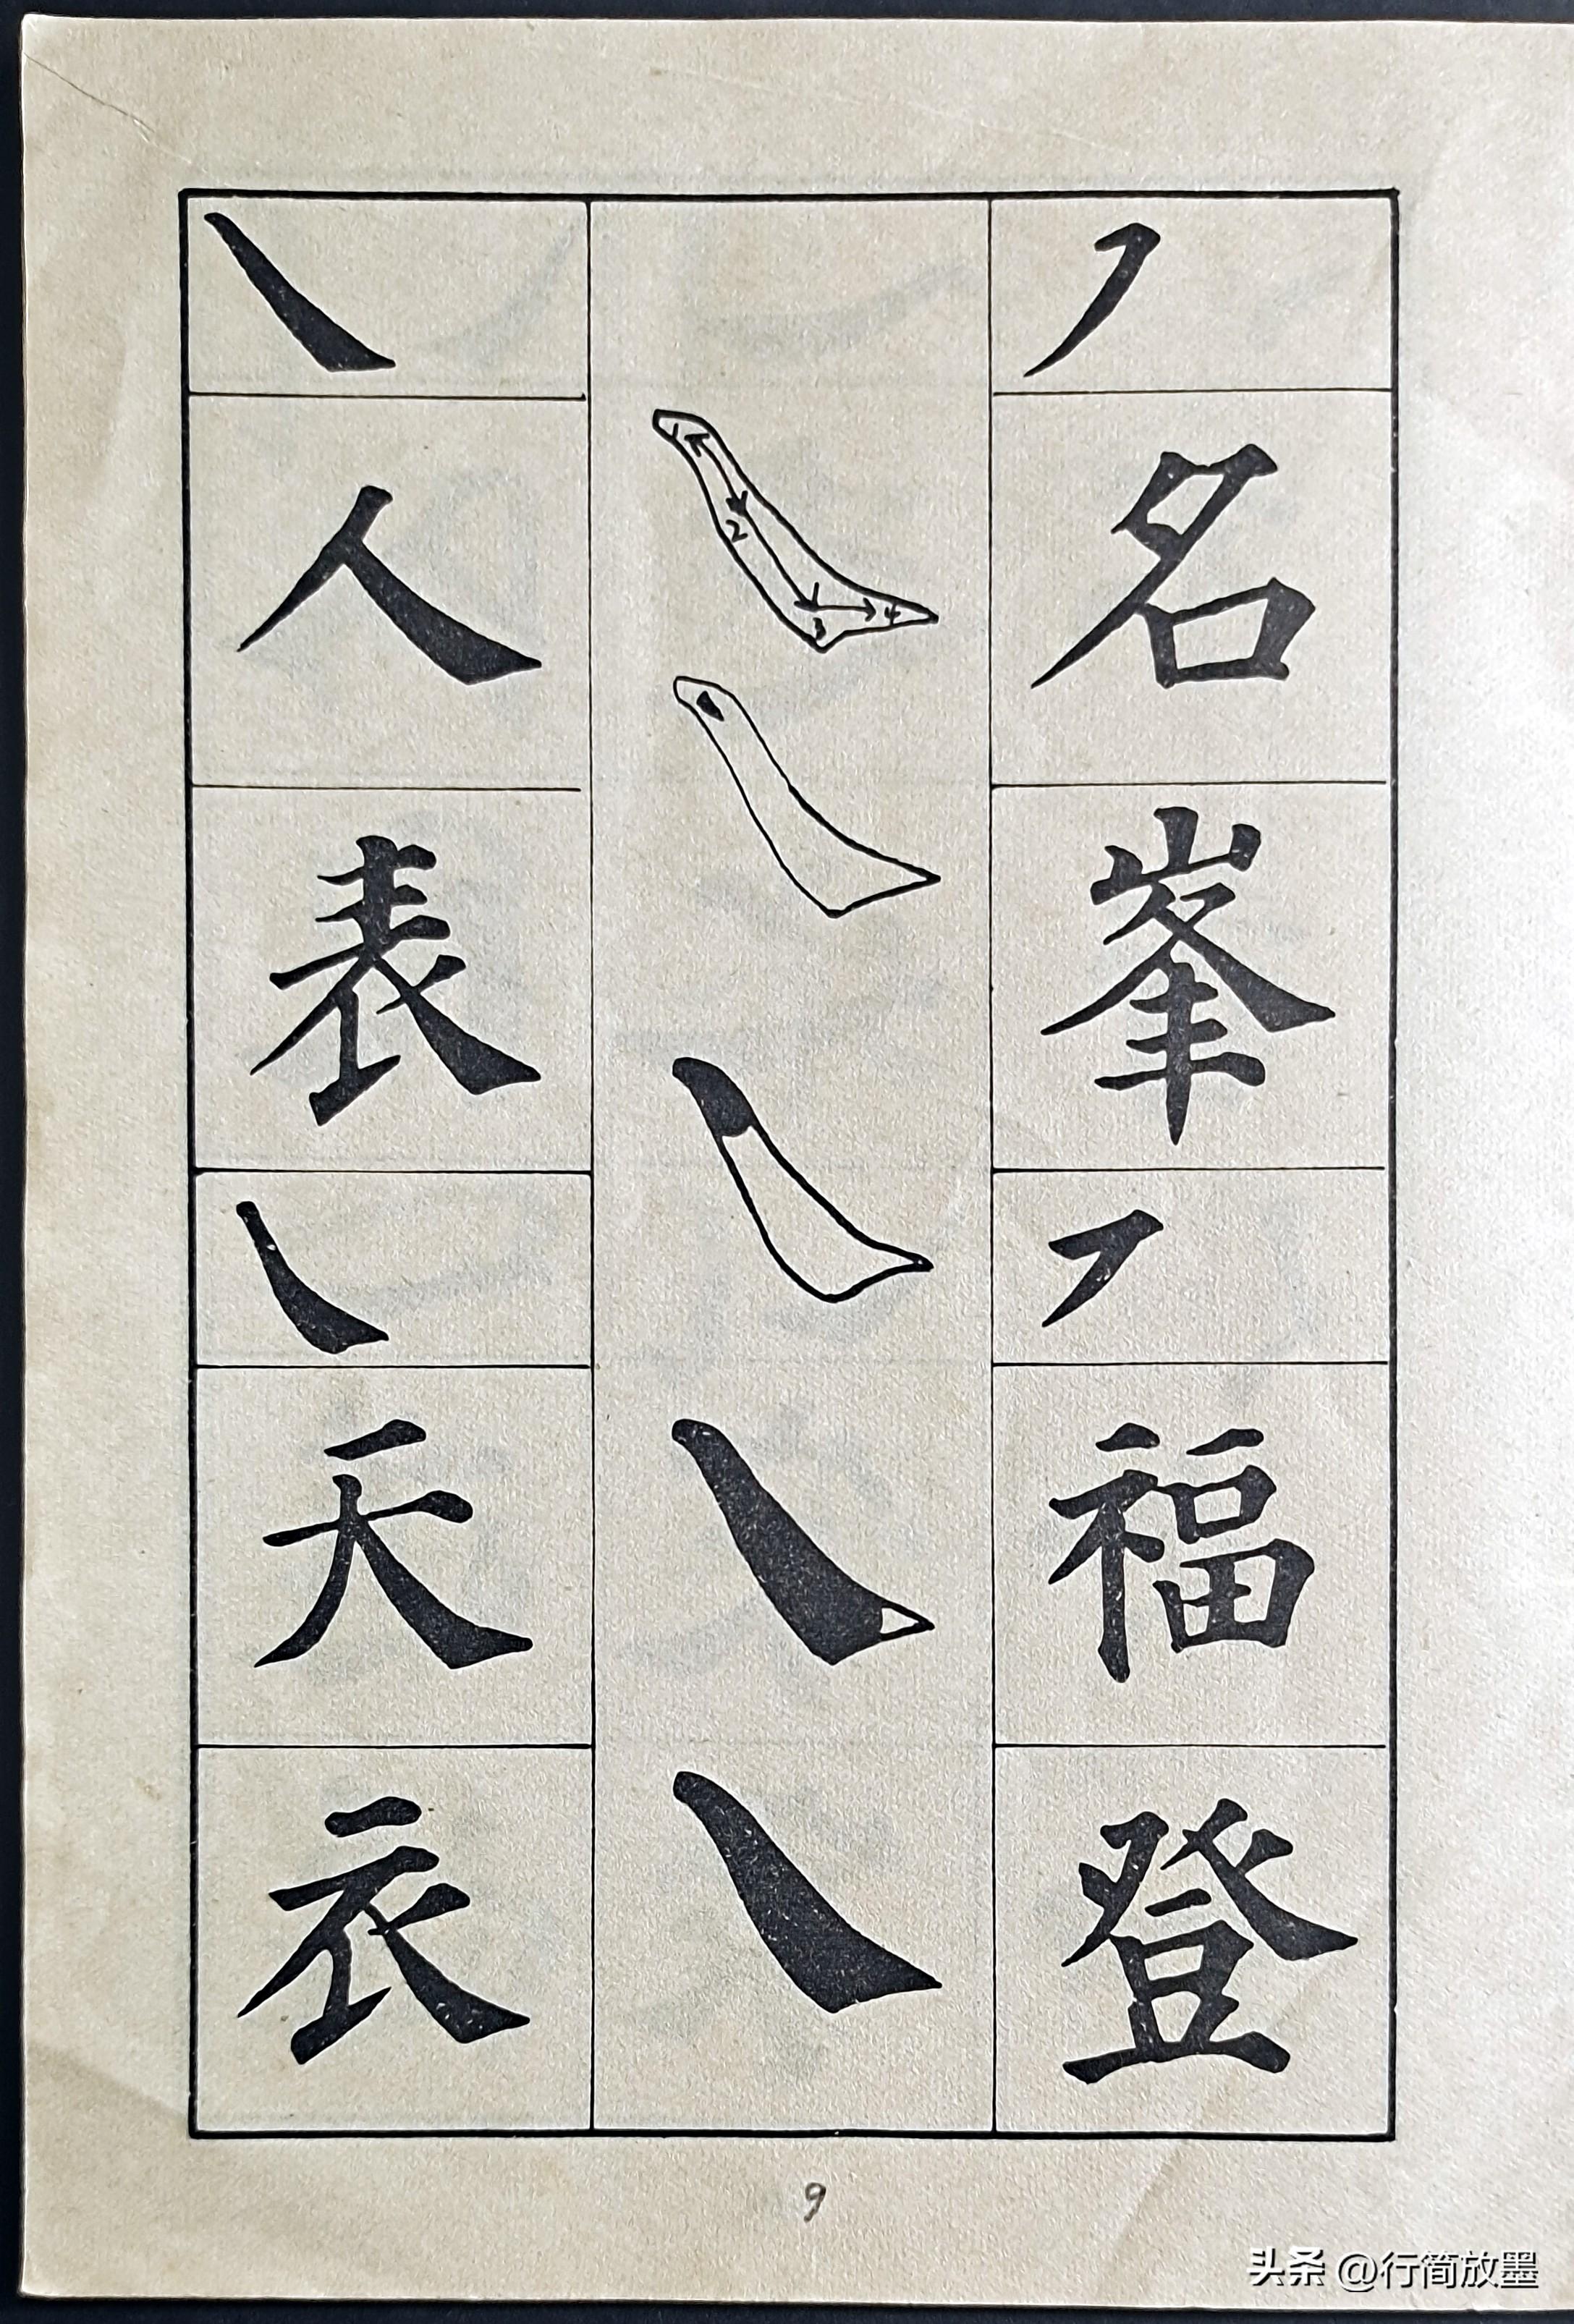 名
峯
福
登
1
2
3
4
人
表
天
衣
9
头条 @行简放墨